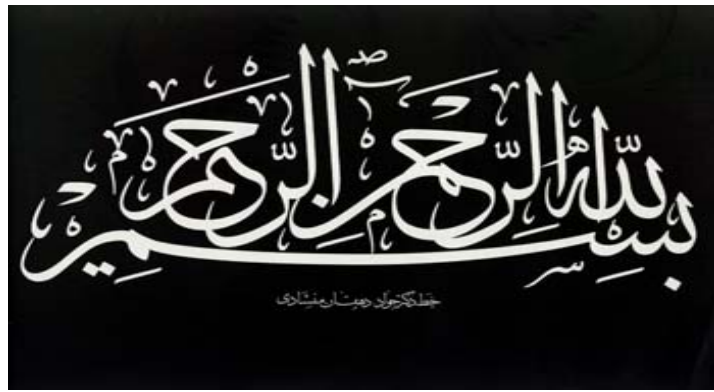 بسم الله الرحمن الرحيم
خط دکتر جواد دهقان